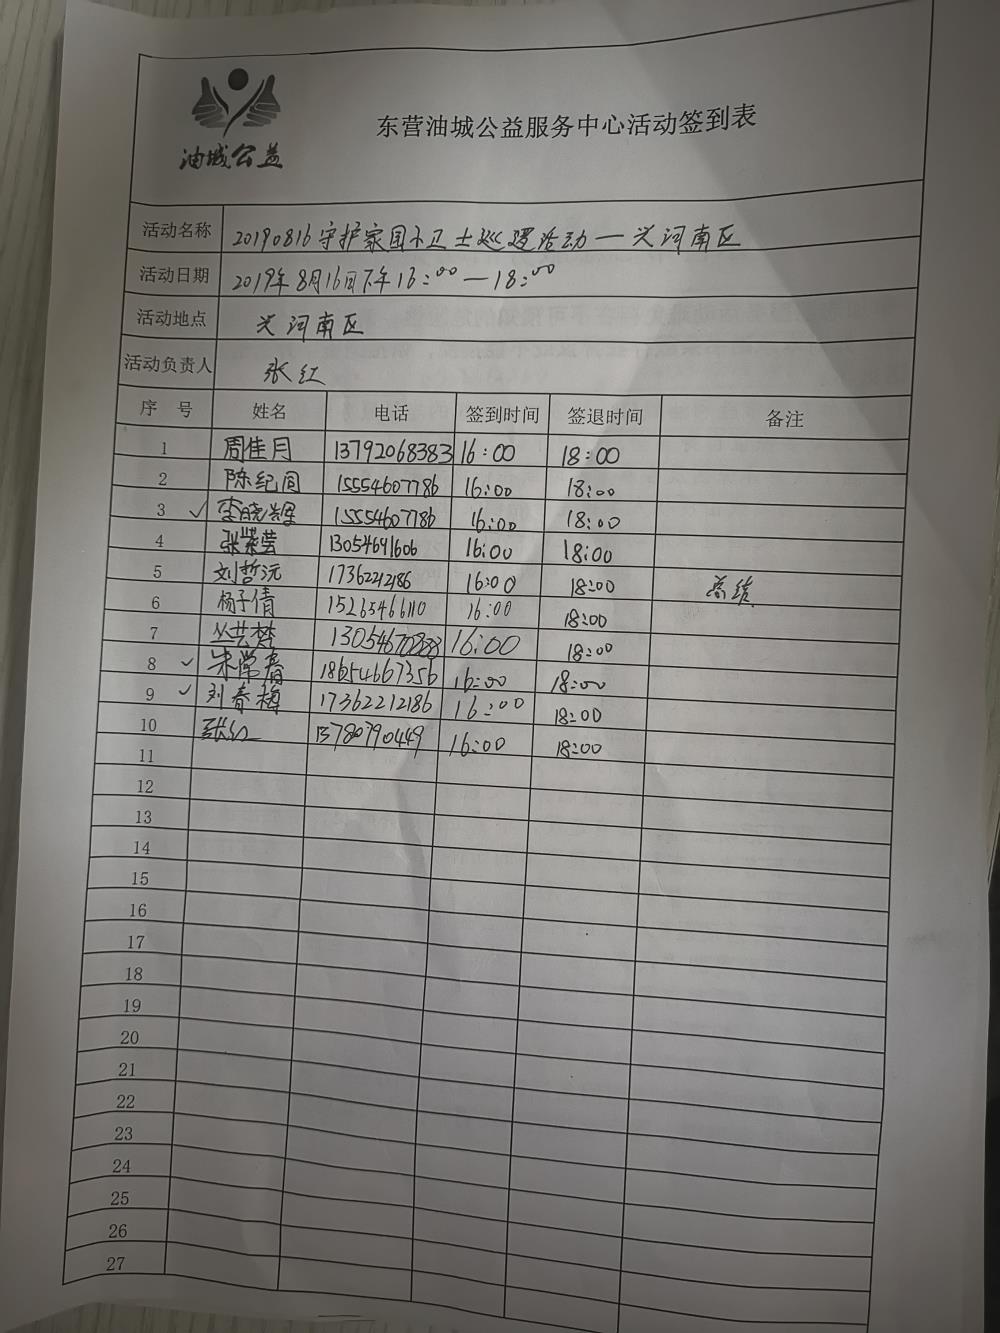 油城公益
东营油城公益服务中心活动签到表
活动名称 20190816守护家园小卫士巡逻活动—兴河南区
活动日期 2019年8月16日下午16:00—18:00
活动地点 兴河南区
活动负责人 张红
序号 姓名 电话 签到时间 签退时间 备注
1 周佳月 13792068383 16:00 18:00
2 陈纪闾 15554607786 16:00 18:00
3 ✓ 李晓辉 15554607786 16:00 18:00
4 张紫莹 13054691606 16:00 18:00
5 刘哲沅 17362212186 16:00 18:00 总结
6 杨子倩 15265466110 16:00 18:00
7 丛芸梦 16:00 18:00
8 ✓ 朱常青 18654667356 16:00 18:00
9 ✓ 刘春梅 17362212186 16:00 18:00
10 张红 13780790449 16:00 18:00
11
12
13
14
15
16
17
18
19
20
21
22
23
24
25
26
27